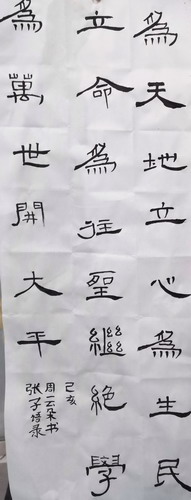 為天地立心為生民
立命為往聖繼絕學
為萬世開大平
己亥
周云朵书
张子语录